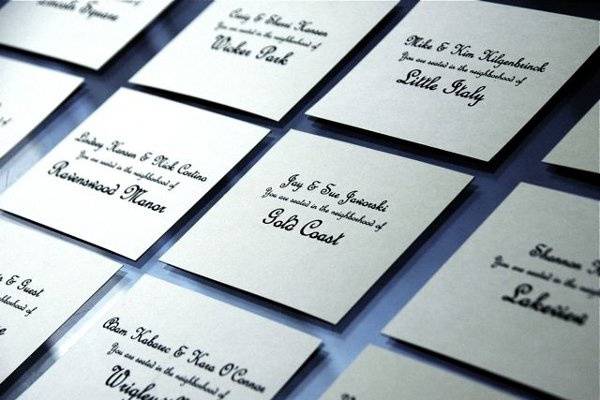 Square
Craig & Sherri Hansen
You are seated in the neighborhood of
Wicker Park
Mike & Kim Kilgenbrinck
You are seated in the neighborhood of
Little Italy
Lindsey Hansen & Nick Cortino
You are seated in the neighborhood of
Ravenswood Manor
Jay & Sue Jaworski
You are seated in the neighborhood of
Gold Coast
Shannon
You are seated in the neighborhood
Lakeview
& Guest
in the neighborhood of
Adam Kabarec & Kara O'Connor
You are seated in the neighborhood of
Wrigley